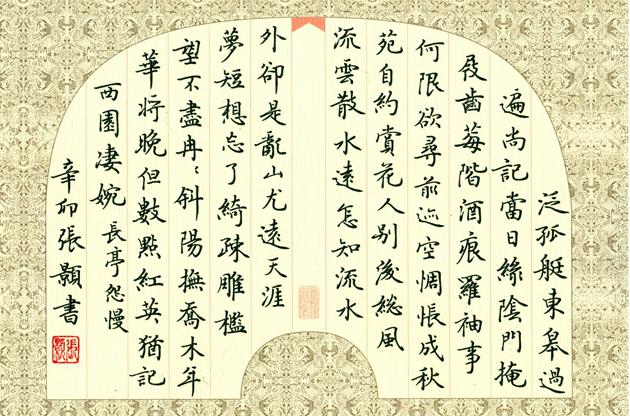 泛孤艇東皋過
遍尚記當日綠陰門掩
屐齒莓階酒痕羅袖事
何限欲尋前迹空惆悵成秋
苑自約賞花人別後總風
流雲散水遠怎知流水
外卻是亂山尤遠天涯
夢短想忘了綺疎雕檻
望不盡冉〻斜陽撫喬木年
華將晚但數點紅英猶記
西園淒婉 長亭怨慢
辛卯張顥書